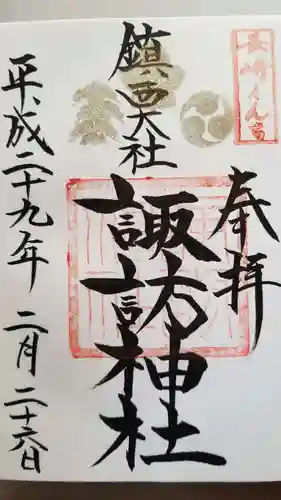 長崎くんち
奉拝
鎮西大社
諏訪神社
平成二十九年 二月 二十六日